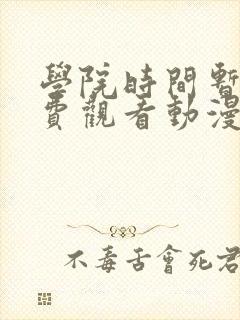 學院時間暫
費觀看動漫
不毒舌會死君